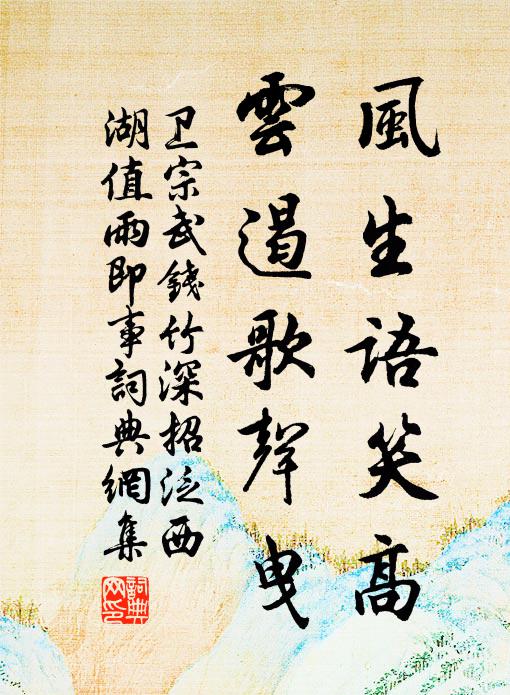 風生語笑高
雲遏歌聲曳
卫宗武錢竹深招泛西
湖值雨即事詞典網集
詞典網印